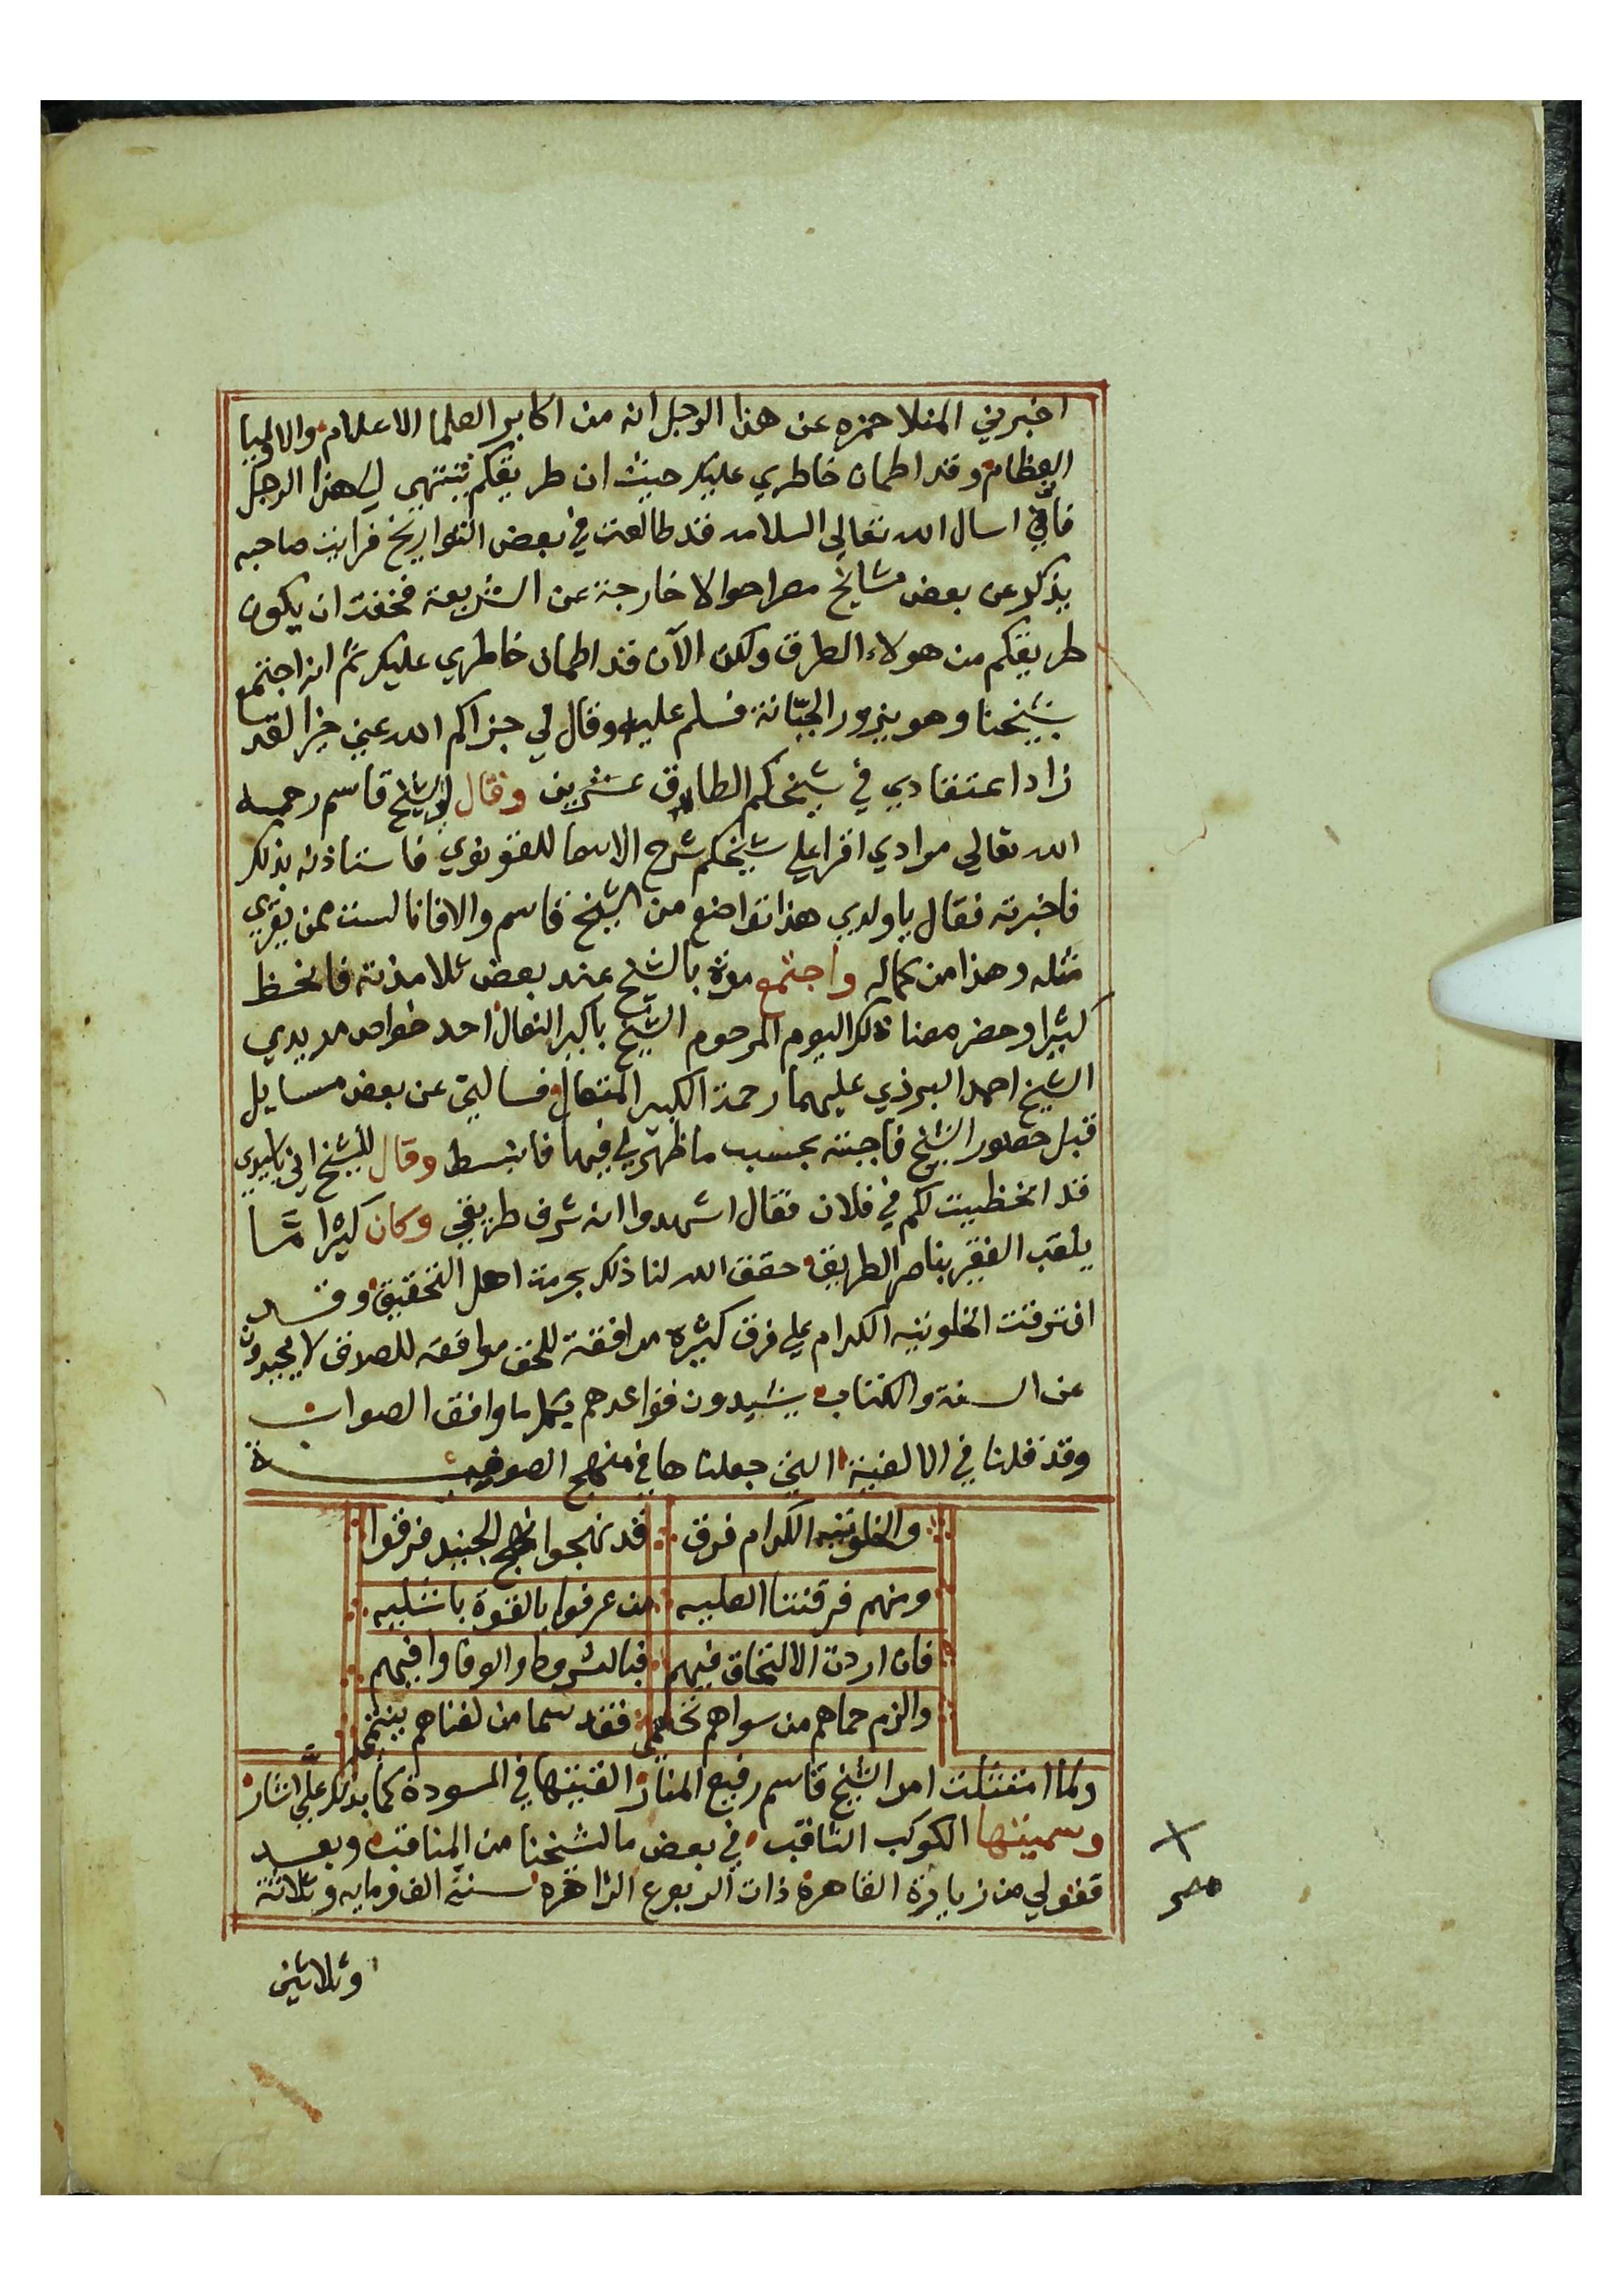 اخبرني المنلا حمزه عن هذا الرجل انه من اكابر العلما الاعلام والاوليا
العظام وقد اطمان خاطري عليك حيث ان طريقكم تنتهي الى هذا الرجل
فاني اسال الله تعالى السلامه قد طالعت في بعض التواريخ فرايت صاحبه
يذكر عن بعض مشايخ مصر احوالا خارجة عن الشريعة فخفت ان يكون
طريقكم من هولاء الطرق ولكن الآن قد اطمان خاطري عليكم ثم انه اجتمع
بشيخنا وهو يزور الجبّانة فسلم عليه وقال لي جزاكم الله عني خيرا لقد
زاد اعتقادي في شيخكم الطارق عشرين وقال لي الشيخ قاسم رحمه
الله تعالى مرادي اقرا على شيخكم شرح الاسما للقونوي فاستاذنه بذلك
فاخبرته فقال يا ولدي هذا تواضع من الشيخ قاسم والا فانا لست ممن يقري
مثله وهذا من كماله واجتمع مرة بالشيخ عند بعض تلامذته فانحظ
كثيرا وحضر معنا ذلك اليوم المرحوم الشيخ باكير النعال احد خواص مريدي
الشيخ احمد البرذي عليهما رحمة الكبير المتعال فسالني عن بعض مسايل
قبل حضور الشيخ فاجبته بحسب ما ظهر لي فيها فانبسط وقال للشيخ اني يا سيدي
قد انحظيت لكم في فلان فقال اشهدوا انه شرف طريقي وكان كثيرا مّا
يلقب الفقير بناصر الطريق حقق الله لنا ذلك بحرمة اهل التحقيق وقد
افترقت الخلوتيه الكرام على فرق كثيره مرافقة للحق موافقه للصدق لا يحيدون
عن السنة والكتاب يشيدون قواعدهم بكل ما وافق الصواب
وقد قلنا في الالفية التي جعلناها في منهج الصوفية
والخلوتيه الكرام فرق قد نهجوا نهج الجنيد فرقوا
ومنهم فرقتنا العليه من عرفوا بالقرة باشليه
فان اردت الالتحاق فيهم فبالشروط والوفا وافيهم
والزم حماهم من سواهم تحلي فقد سما من لفناهم ينتمي
ولما امتثلت امر الشيخ قاسم رفيع المنار الفيتها في المسودة كما بذلك عليّ اشار
وسميتها الكوكب الثاقب في بعض ما لشيخنا من المناقب وبعد
قفولي من زيارة القاهرة ذات الربوع الزاهره سنة الف ومايه وثلاثة
وثلاثين